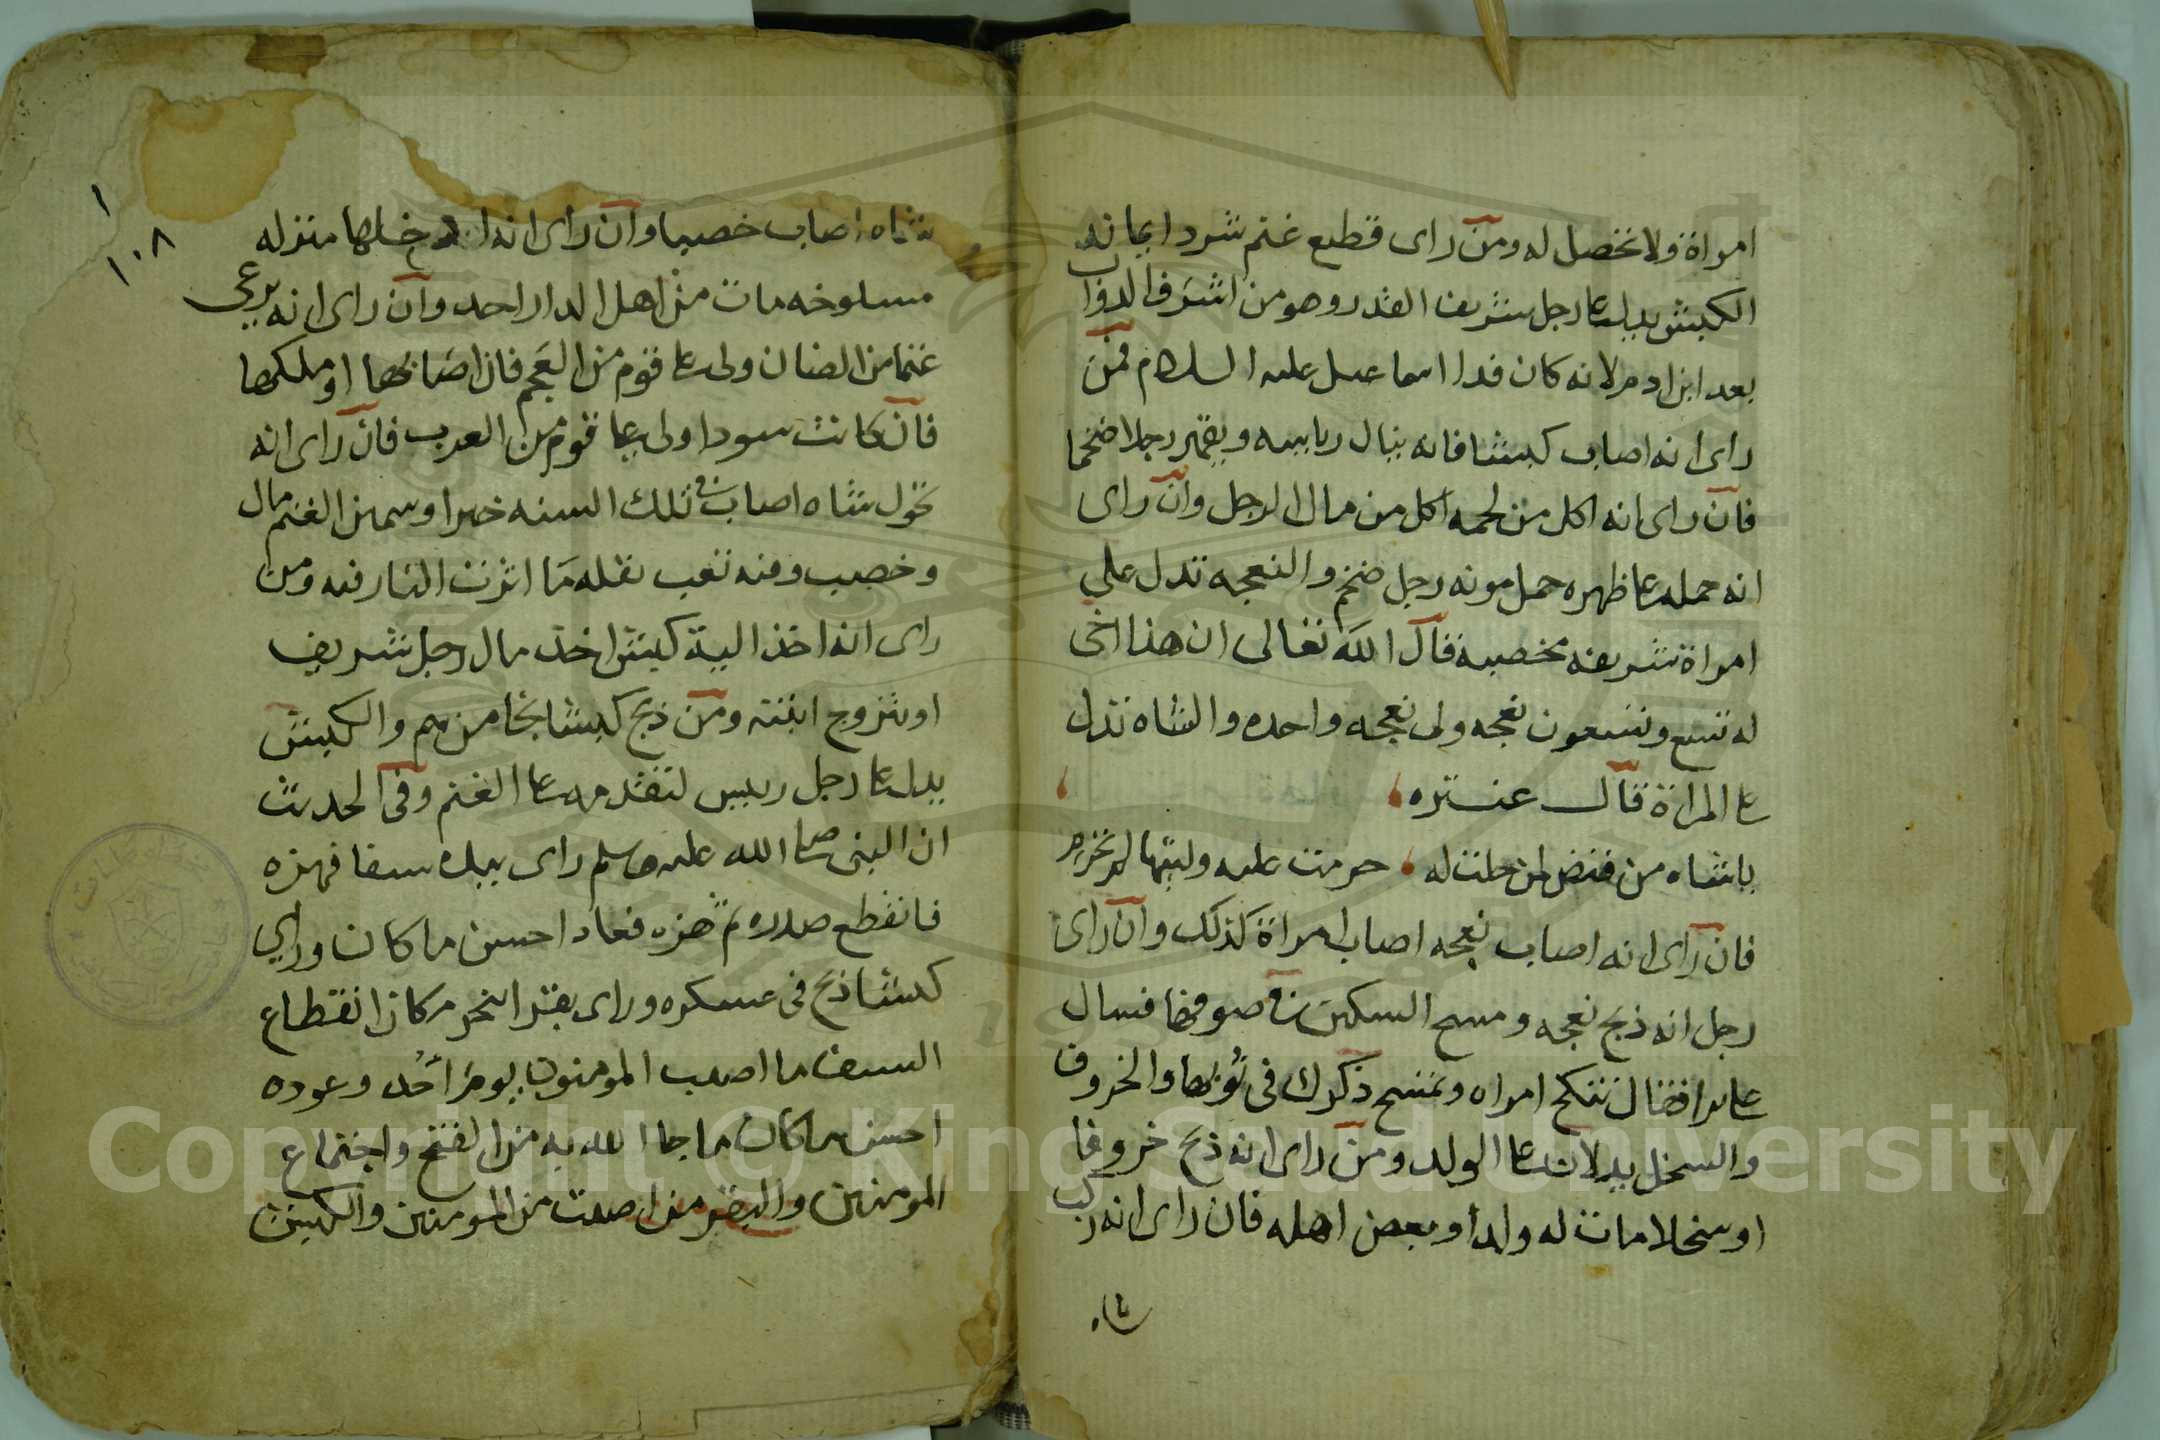 امراة ولا تحصل له ومن راى قطيع غنم شرد ايمانه
الكبش يدل على رجل شريف القدر وهو من اشرف الدواب
بعد ابن ادم لانه كان فدا اسماعيل عليه السلام فمن
راى انه اصاب كبشا فانه ينال رياسه ويقهر رجلا ضخما
فان راى انه اكل من لحمه اكل من مال الرجل وان راى
انه حمله على ظهره حمل مونه رجل ضخم والنعجه تدل على
امراة شريفه مخصبه قال الله تعالى ان هذا اخى
له تسع وتسعون نعجه ولى نعجه واحده والشاه تدل
على المراة قال عنتره
ياشاه من قنص لمن حلت له حرمت عليه وليتها لم تحرم
فان راى انه اصاب نعجه اصاب امراة كذلك وان راى
رجل انه ذبح نعجه ومسح السكين فى صوفها فسال
عابرا فقال تنكح امراه وتمسح ذكرك فى ثوبها والخروف
والسخل يدلان على الولد ومن راى انه ذبح خروفا
او سخلا مات له ولد او بعض اهله فان راى انه ركب
شاه
١
١٠٨
شاه اصاب خصبا وان راى انه ادخلها منزله
مسلوخه مات من اهل الدار احد وان راى انه يرعى
غنما من الضان ولى على قوم من العجم فان اصابها او ملكها
فان كانت سودا ولى على قوم من العرب فان راى انه
تحول شاه اصاب فى تلك السنه خيرا وسمين الغنم مال
وخصب ومنه تعب نقله ما اثرت النار فيه ومن
راى انه اخذ الية كبش اخذ مال رجل شريف
او تزوج ابنته ومن ذبح كبشا نجا من هم والكبش
يدل على رجل رييس لتقدمه على الغنم وفى الحديث
ان النبى صلى الله عليه وسلم راى بيده سيفا فهزه
فانقطع صدره ثم هزه فعاد احسن ما كان وراى
كبشا ذبح فى عسكره وراى بقرا تنحر فكان انقطاع
السيف ما اصيب المومنون يوم احد وعوده
احسن ما كان ما جا الله به من الفتح واجتماع
المومنين والبقر من اصيب من المومنين والكبش
Copyright © King Saud University